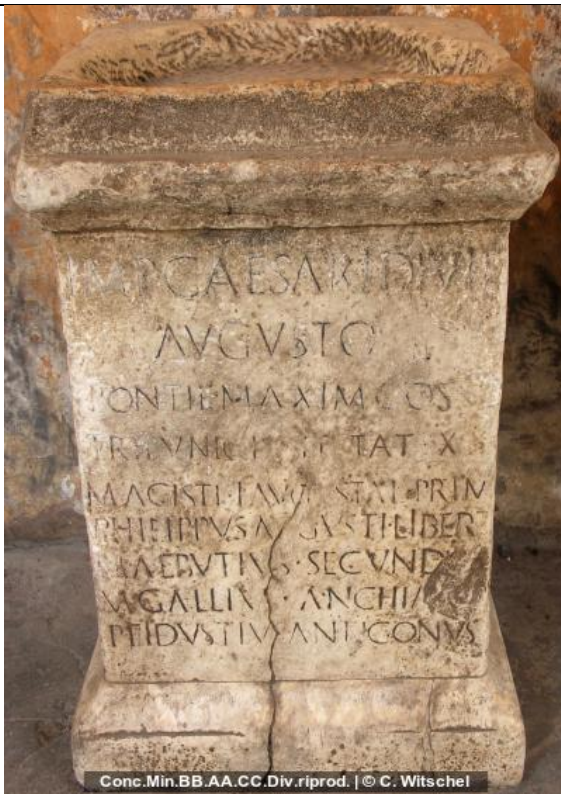 IMP CAESARI DIVI
AVGVSTO
PONTIF MAXIM COS
TAT X
MAGISTRI AVGVSTAL PRIM
PHILIPPVS AVGVSTI LIBERT
M AEBVTIVS SECVND
M GALLIVS ANCHIA
P FIDVSTIVS ANTIGONVS
Conc.Min.BB.AA.CC.Div.riprod. | © C. Witschel